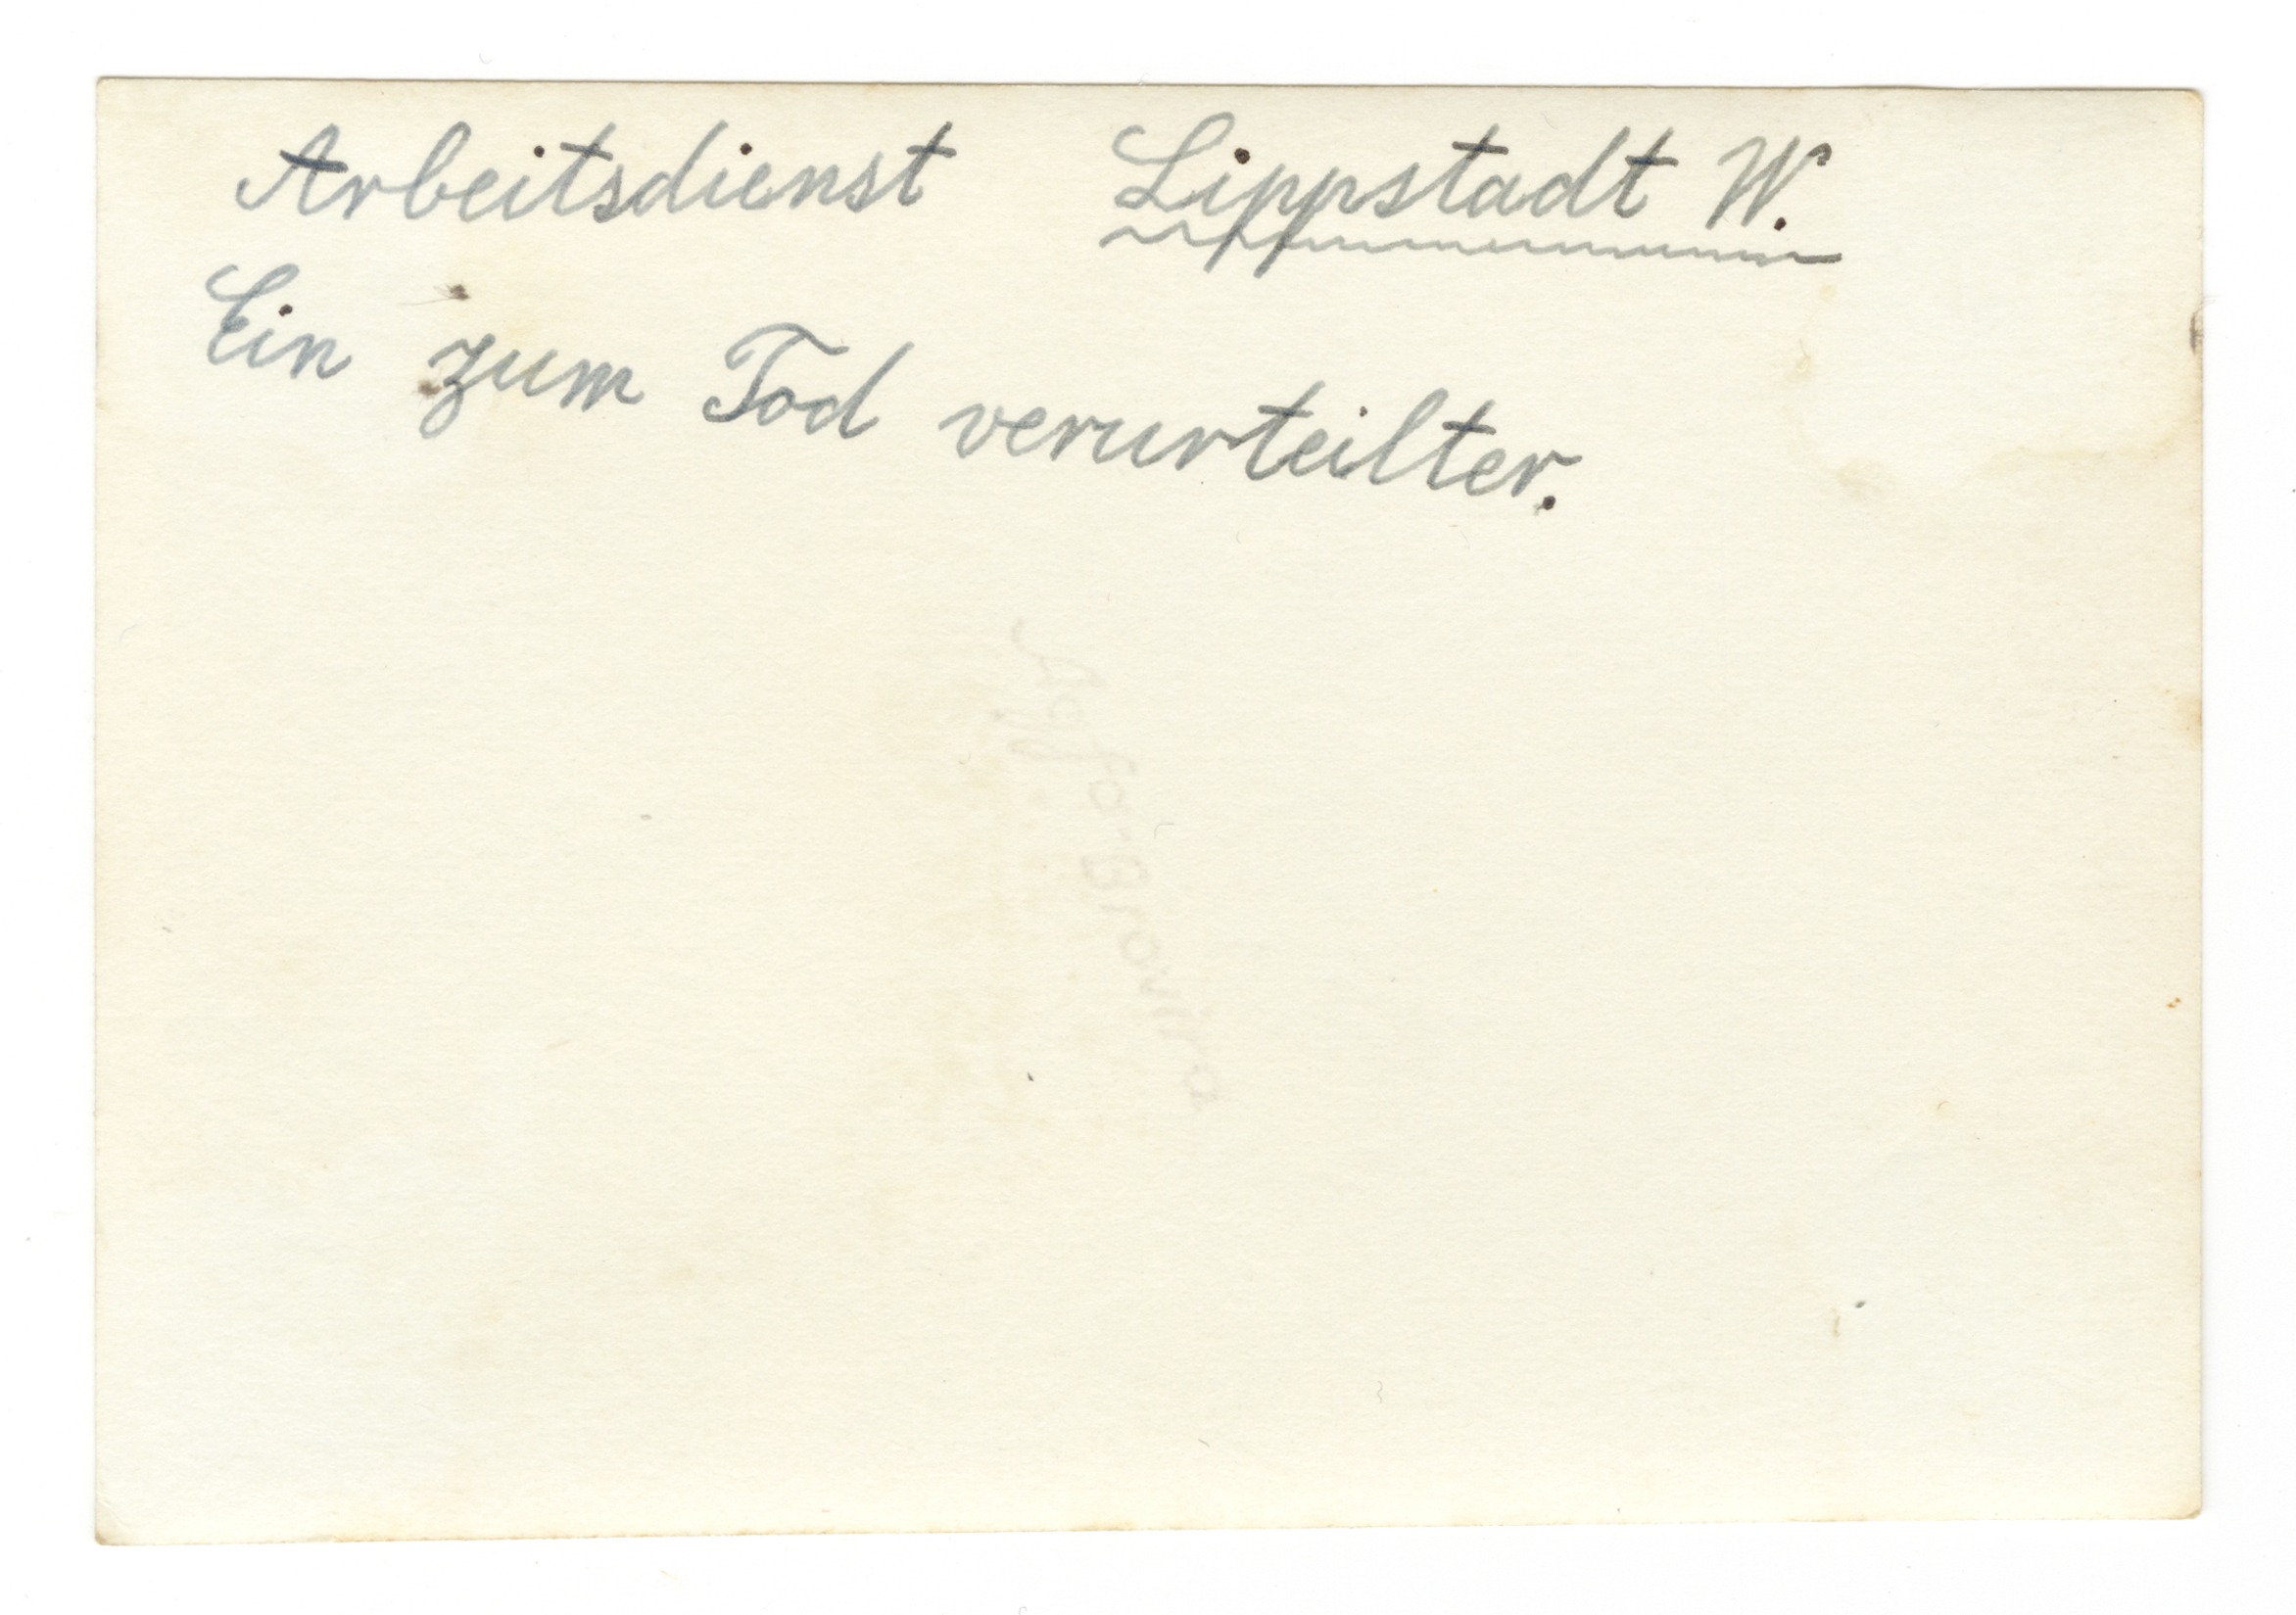 Arbeitsdienst Lippstadt W.
Ein zum Tod verurteilter.